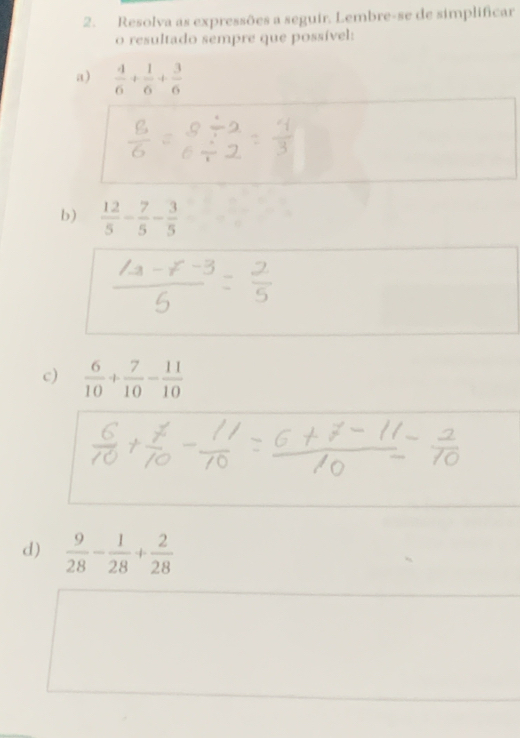 2. Resolva as expressões a seguir. Lembre-se de simplificar
o resultado sempre que possível:
a) 4/6 + 1/6 + 3/6
8/6 = 8 ÷ 2 / 6 ÷ 2 = 4/3
b) 12/5 - 7/5 - 3/5
12 - 7 - 3 / 5 = 2/5
c) 6/10 + 7/10 - 11/10
6/10 + 7/10 - 11/10 = 6 + 7 - 11 / 10 = 2/10
d) 9/28 - 1/28 + 2/28